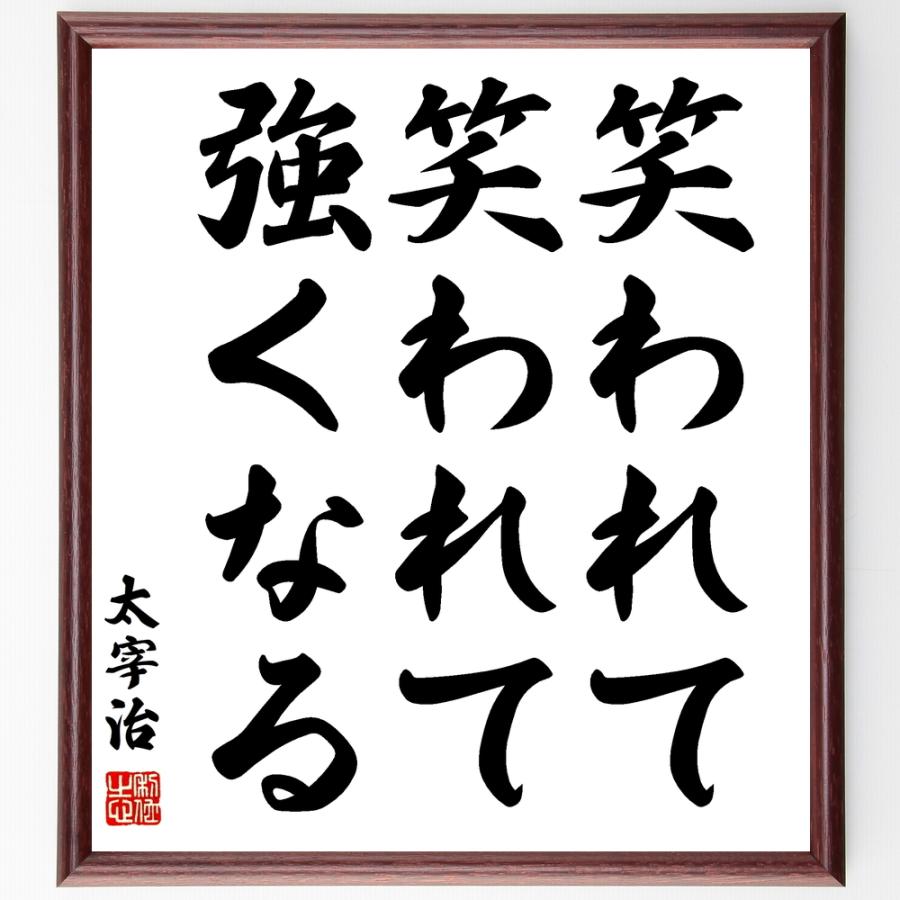 笑われて
笑われて
強くなる
太宰治